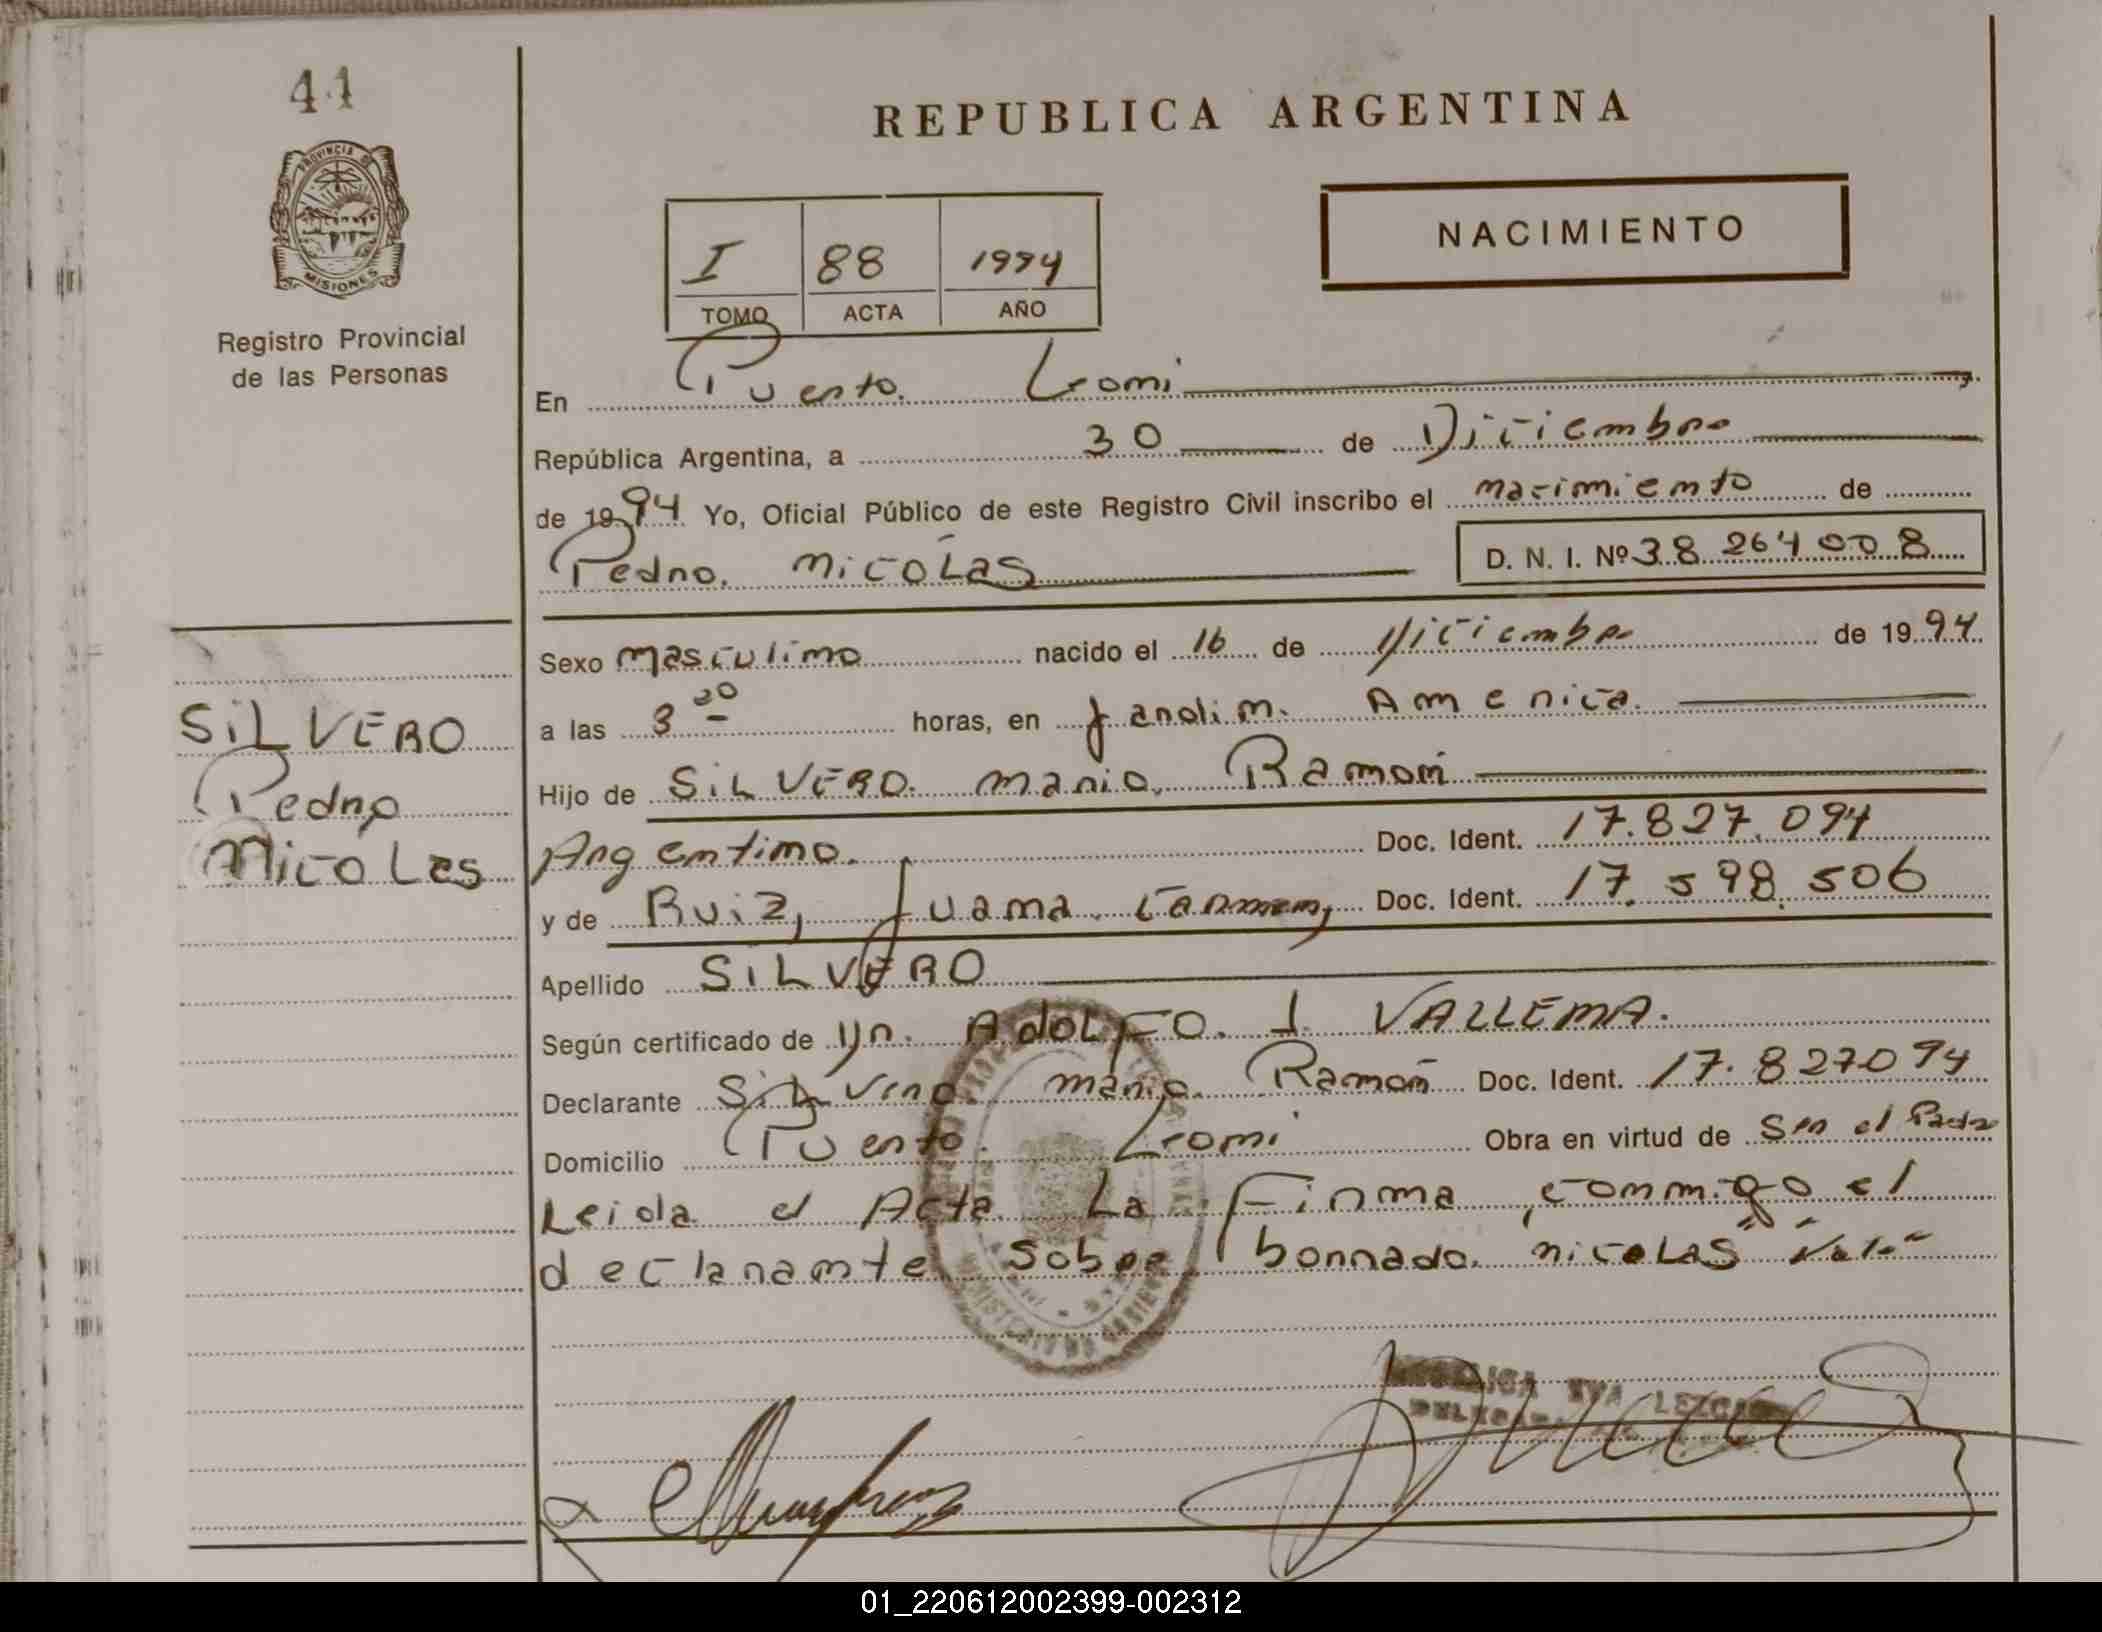 44
REPUBLICA ARGENTINA
NACIMIENTO
I 88 1994
TOMO ACTA AÑO
PROVINCIA DE
MISIONES
Registro Provincial
de las Personas
En Puerto Leoni
República Argentina, a 30 de Diciembre
de 1994 Yo, Oficial Público de este Registro Civil inscribo el nacimiento de
Pedro Nicolas
D. N. I. Nº 38 264 008
Sexo masculino nacido el 16 de Diciembre de 1994
a las 3 30 horas, en Jardin America.
Hijo de SILVERO Mario Ramon
Argentino. Doc. Ident. 17.827.094
y de Ruiz, Juana Carmen, Doc. Ident. 17.598.506
Apellido SILVERO
Según certificado de Dr. ADOLFO. J. VALLEMA.
Declarante Silvero Mario Ramon Doc. Ident. 17.827094
Domicilio Puerto Leoni Obra en virtud de Ser el Padre
Leida el Acta La Firma conmigo el
declarante sobre borrado. Nicolas Vale
SILVERO
Pedro
Nicolas
EVA LEZCANO
01_220612002399-002312